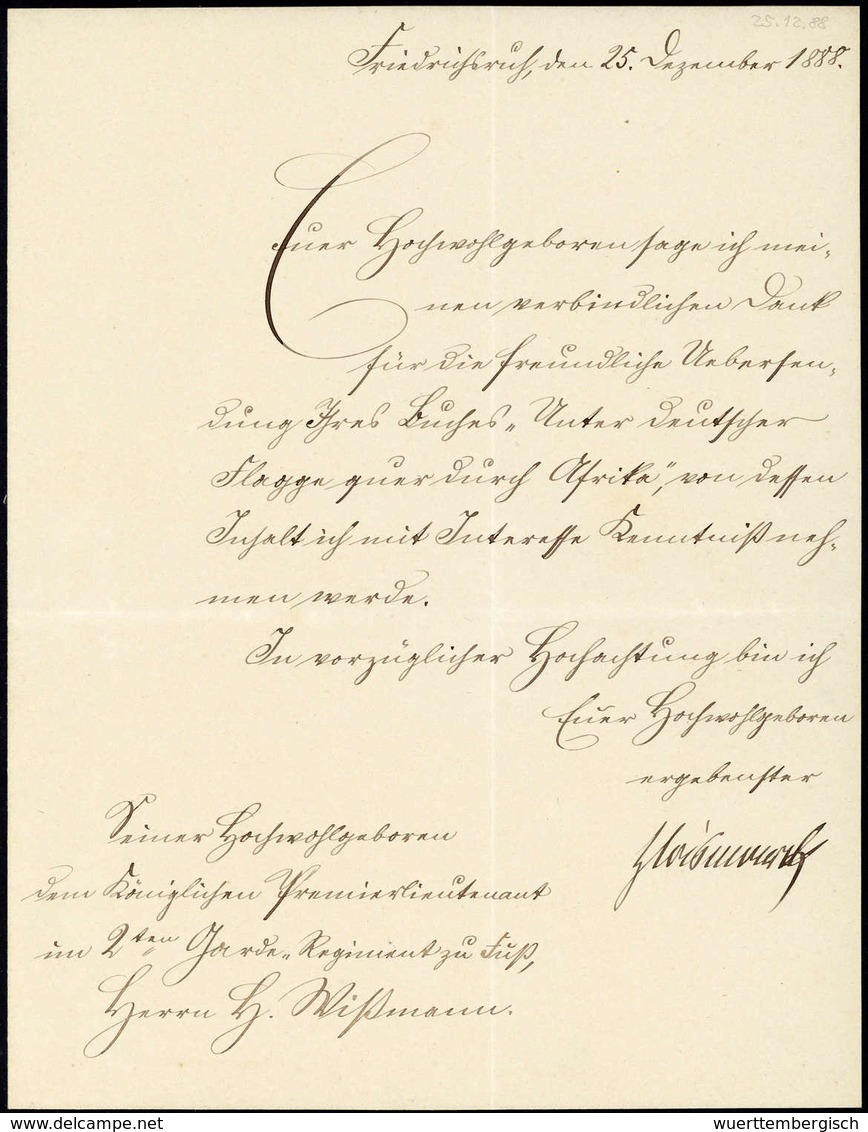 25.12.88
Friedrichsruh, den 25. Dezember 1888.
Euer Hochwohlgeboren sage ich mei-
nen verbindlichen Dank
für die freundliche Uebersen-
dung Ihres Buches „Unter deutscher
Flagge quer durch Afrika“, von dessen
Inhalt ich mit Interesse Kenntniß neh-
men werde.
In vorzüglicher Hochachtung bin ich
Euer Hochwohlgeboren
ergebenster
v Bismarck
Seiner Hochwohlgeboren
dem Königlichen Premierlieutenant
im 2ten Garde-Regiment zu Fuß,
Herrn H. Wißmann.
delcampe.net
wuerttembergisch